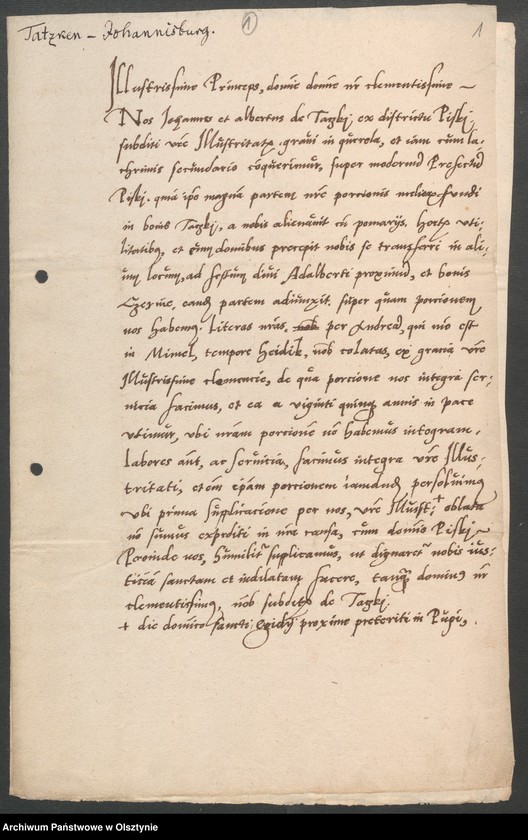 Tatzken – Johannisburg.
1
1
Illustrissime Princeps, domine domine nr clementissime
Nos Johannes et albertus de Taczkj, ex districtu Piskj,
subditi vre Illustritatis, gravi in querela, et cum la-
chrimis secundario coquerimur, super modernu Prefectu
Piskj. qma ipse magna partem nre porcionis fundi
in bonis Taczkj, a nobis alienavit cu pomarijs, hortis uti-
litatibus, et cum domibus precepit nobis se transferri in ali-
um locum, ad festum divi Adalberti proximu, et bonis
eande partem adiunxit. super quam porcionem
nos habemus literas nras, per Andrea, qui nuc est
in Mimel, tempore Heidik, nob colatas, ex gracia vre
Illustrissime clemencie, de qua porcione nos integra ser-
vicia facimus, et ea a viginti quinque annis in pace
utimur, ubi nram porcione no habemus integram.
Labores ant, ac servicia, facimus integra vre Illus-
tritati, et porcionem persolvimus
ubi prima supplicacione per nos, vre Illust: + oblata
no sumus expediti in nra causa, cum domino Piskj
Proinde nos, humilit supplicamus, ut dignaret nobis ius-
ticia sanctam et indilatam facere, tanq dominus nr
clementissimus, nob subditis de Taczkj.
+ die dominico sancti Egidij proxime preteriti in Pupi.
Archiwum Państwowe w Olsztynie